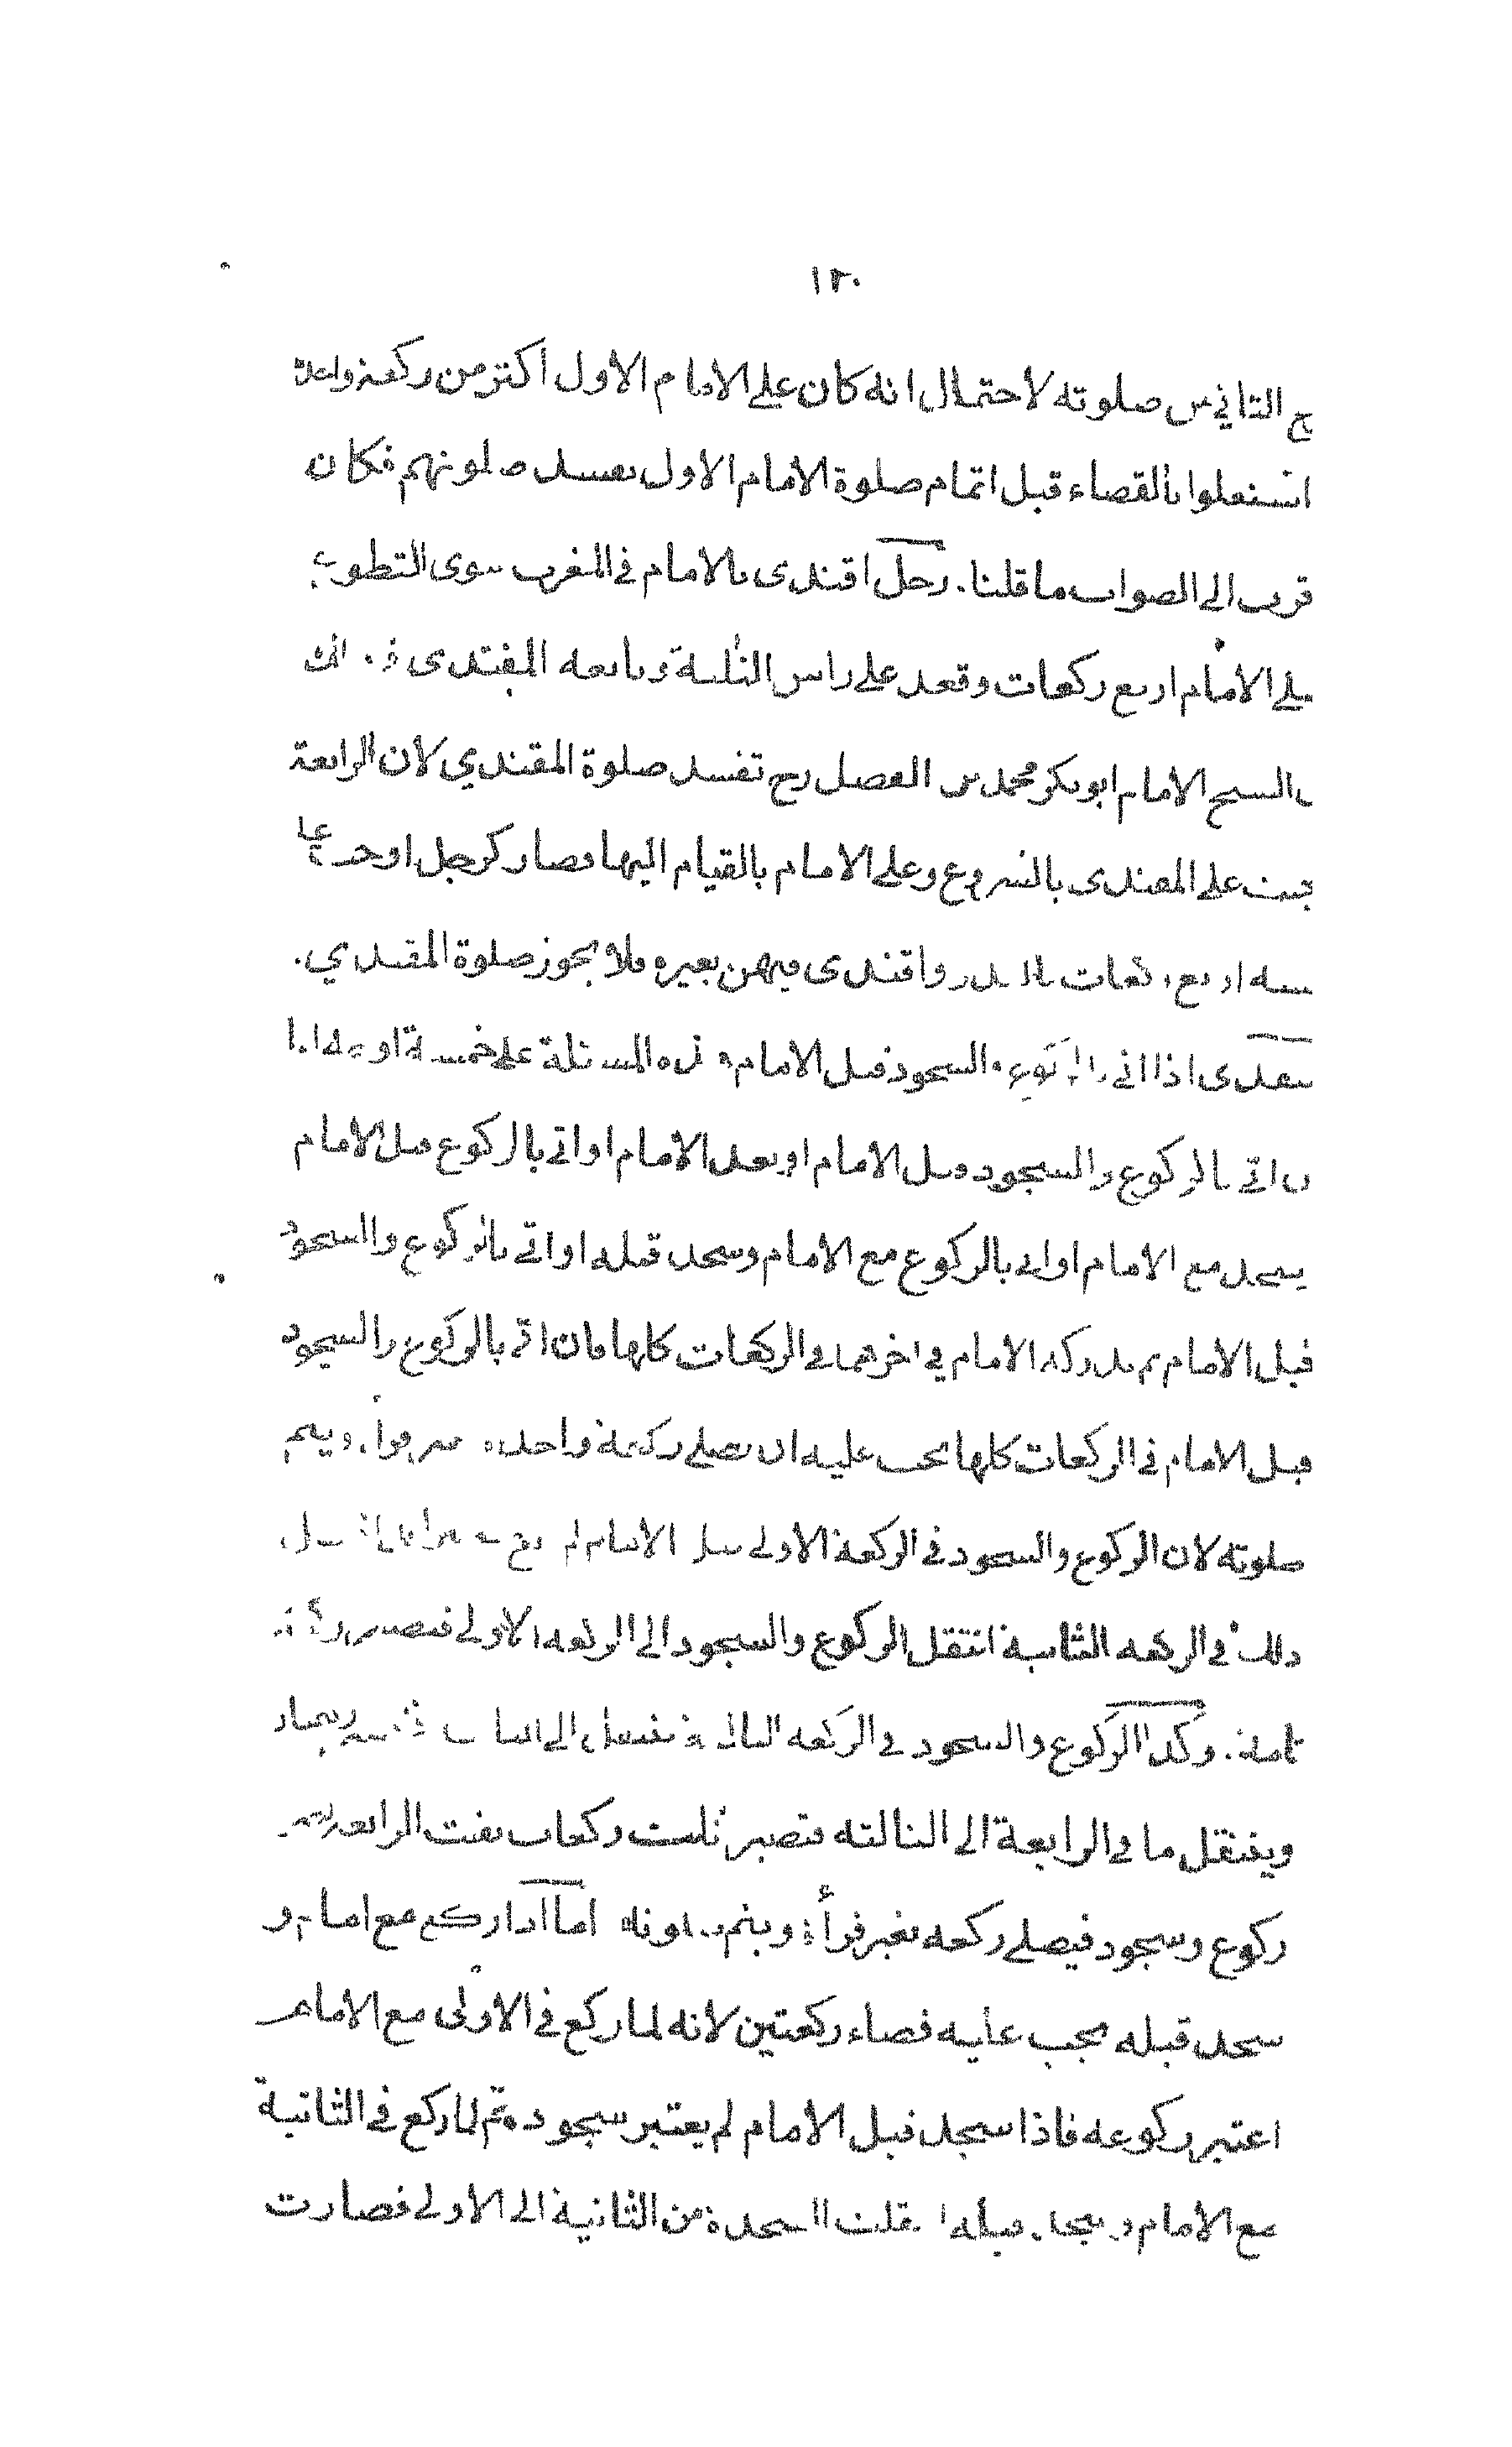 ١٢٠
الثاني من صلوته لاحتمال انه كان على الامام الاول اكثر من ركعة واحدة
اشتغلوا بالقضاء قبل اتمام صلوة الامام الاول تفسد صلوتهم فكان
قرب الى الصواب ما قلنا. رجل اقتدى بالامام في المغرب سوى التطوع
الامام اربع ركعات وقعد على راس الثالثة وتابعه المقتدى
الشيخ الامام ابو بكر محمد بن الفضل رح تفسد صلوة المقتدي لان الرابعة
على المقتدى بالشروع وعلى الامام بالقيام اليها فصار كرجل اوجب على
اربع ركعات بالنذر واقتدى فيهن بغيره فلا يجوز صلوة المقتدي.
اذا اتى بالركوع والسجود قبل الامام هذه المسئلة على خمسة اوجه اما
اتى بالركوع والسجود قبل الامام او بعد الامام او اتى بالركوع قبل الامام
يسجد مع الامام او اتى بالركوع مع الامام وسجد قبله او اتى بالركوع والسجود
قبل الامام ثم يدركه الامام في اخرهما في الركعات كلها فان اتى بالركوع والسجود
قبل الامام في الركعات كلها يجب عليه ان يصلي ركعة واحدة ويتم
صلوته لان الركوع والسجود في الركعة الاولى قبل الامام لم
ذلك في الركعه الثانية انتقل الركوع والسجود الى الركعه الاولى فتصير ركعة
تامة. وكذا الركوع والسجود في الركعه الثالثة ينتقل الى
وينتقل ما في الرابعة الى الثالثه فتصير ثلث ركعات بقيت الرابعة
ركوع وسجود فيصلي ركعه بغير قرأة ويتم صلوته اما اذا ركع مع امام و
سجد قبله يجب عليه قضاء ركعتين لانه لما ركع في الاولى مع الامام
اعتبر ركوعه فاذا سجد قبل الامام لم يعتبر سجوده ثم لما ركع في الثانية
مع الامام وسجد قبله انقلت السجدة من الثانية الى الاولى فصارت